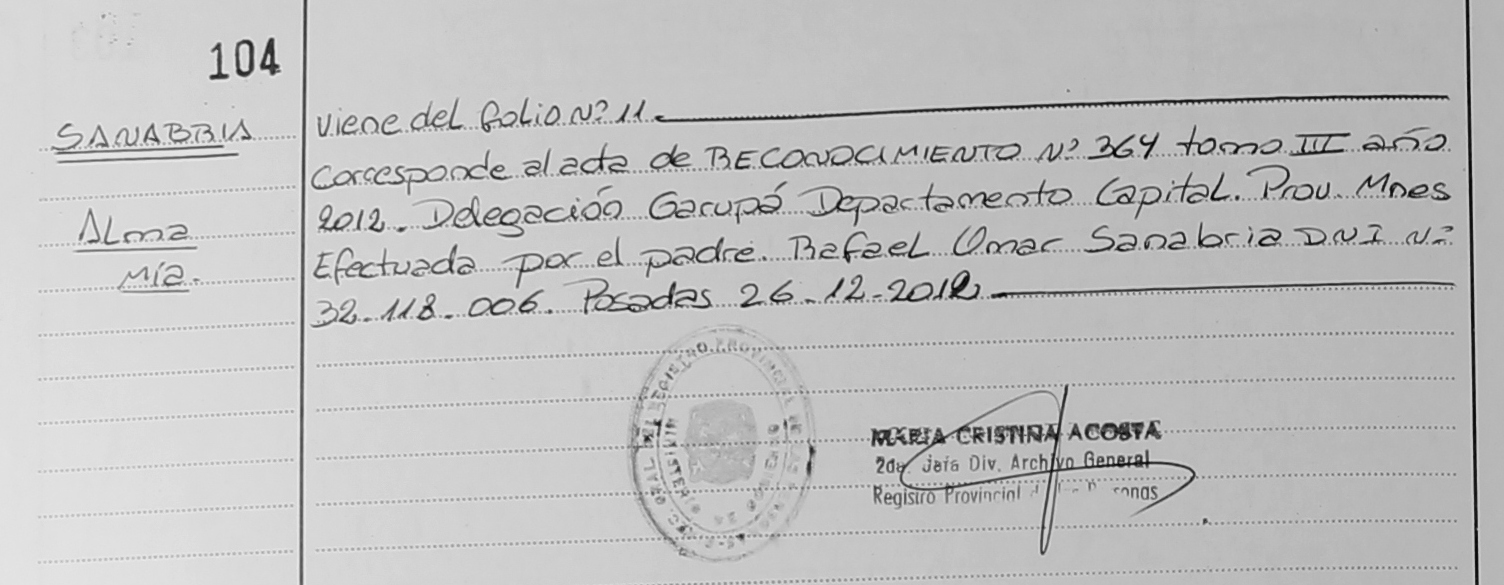 104
SANABRIA
Alma
Mía.
Viene del folio Nº 11.
Corresponde al acta de RECONOCIMIENTO Nº 364 tomo III año
2012. Delegación Garupá Departamento Capital. Prov. Mnes
Efectuada por el padre. Rafael Omar Sanabria DNI Nº
32.118.006. Posadas 26.12.2012
MARIA CRISTINA ACOSTA
2da. Jefa Div. Archivo General
Registro Provincial